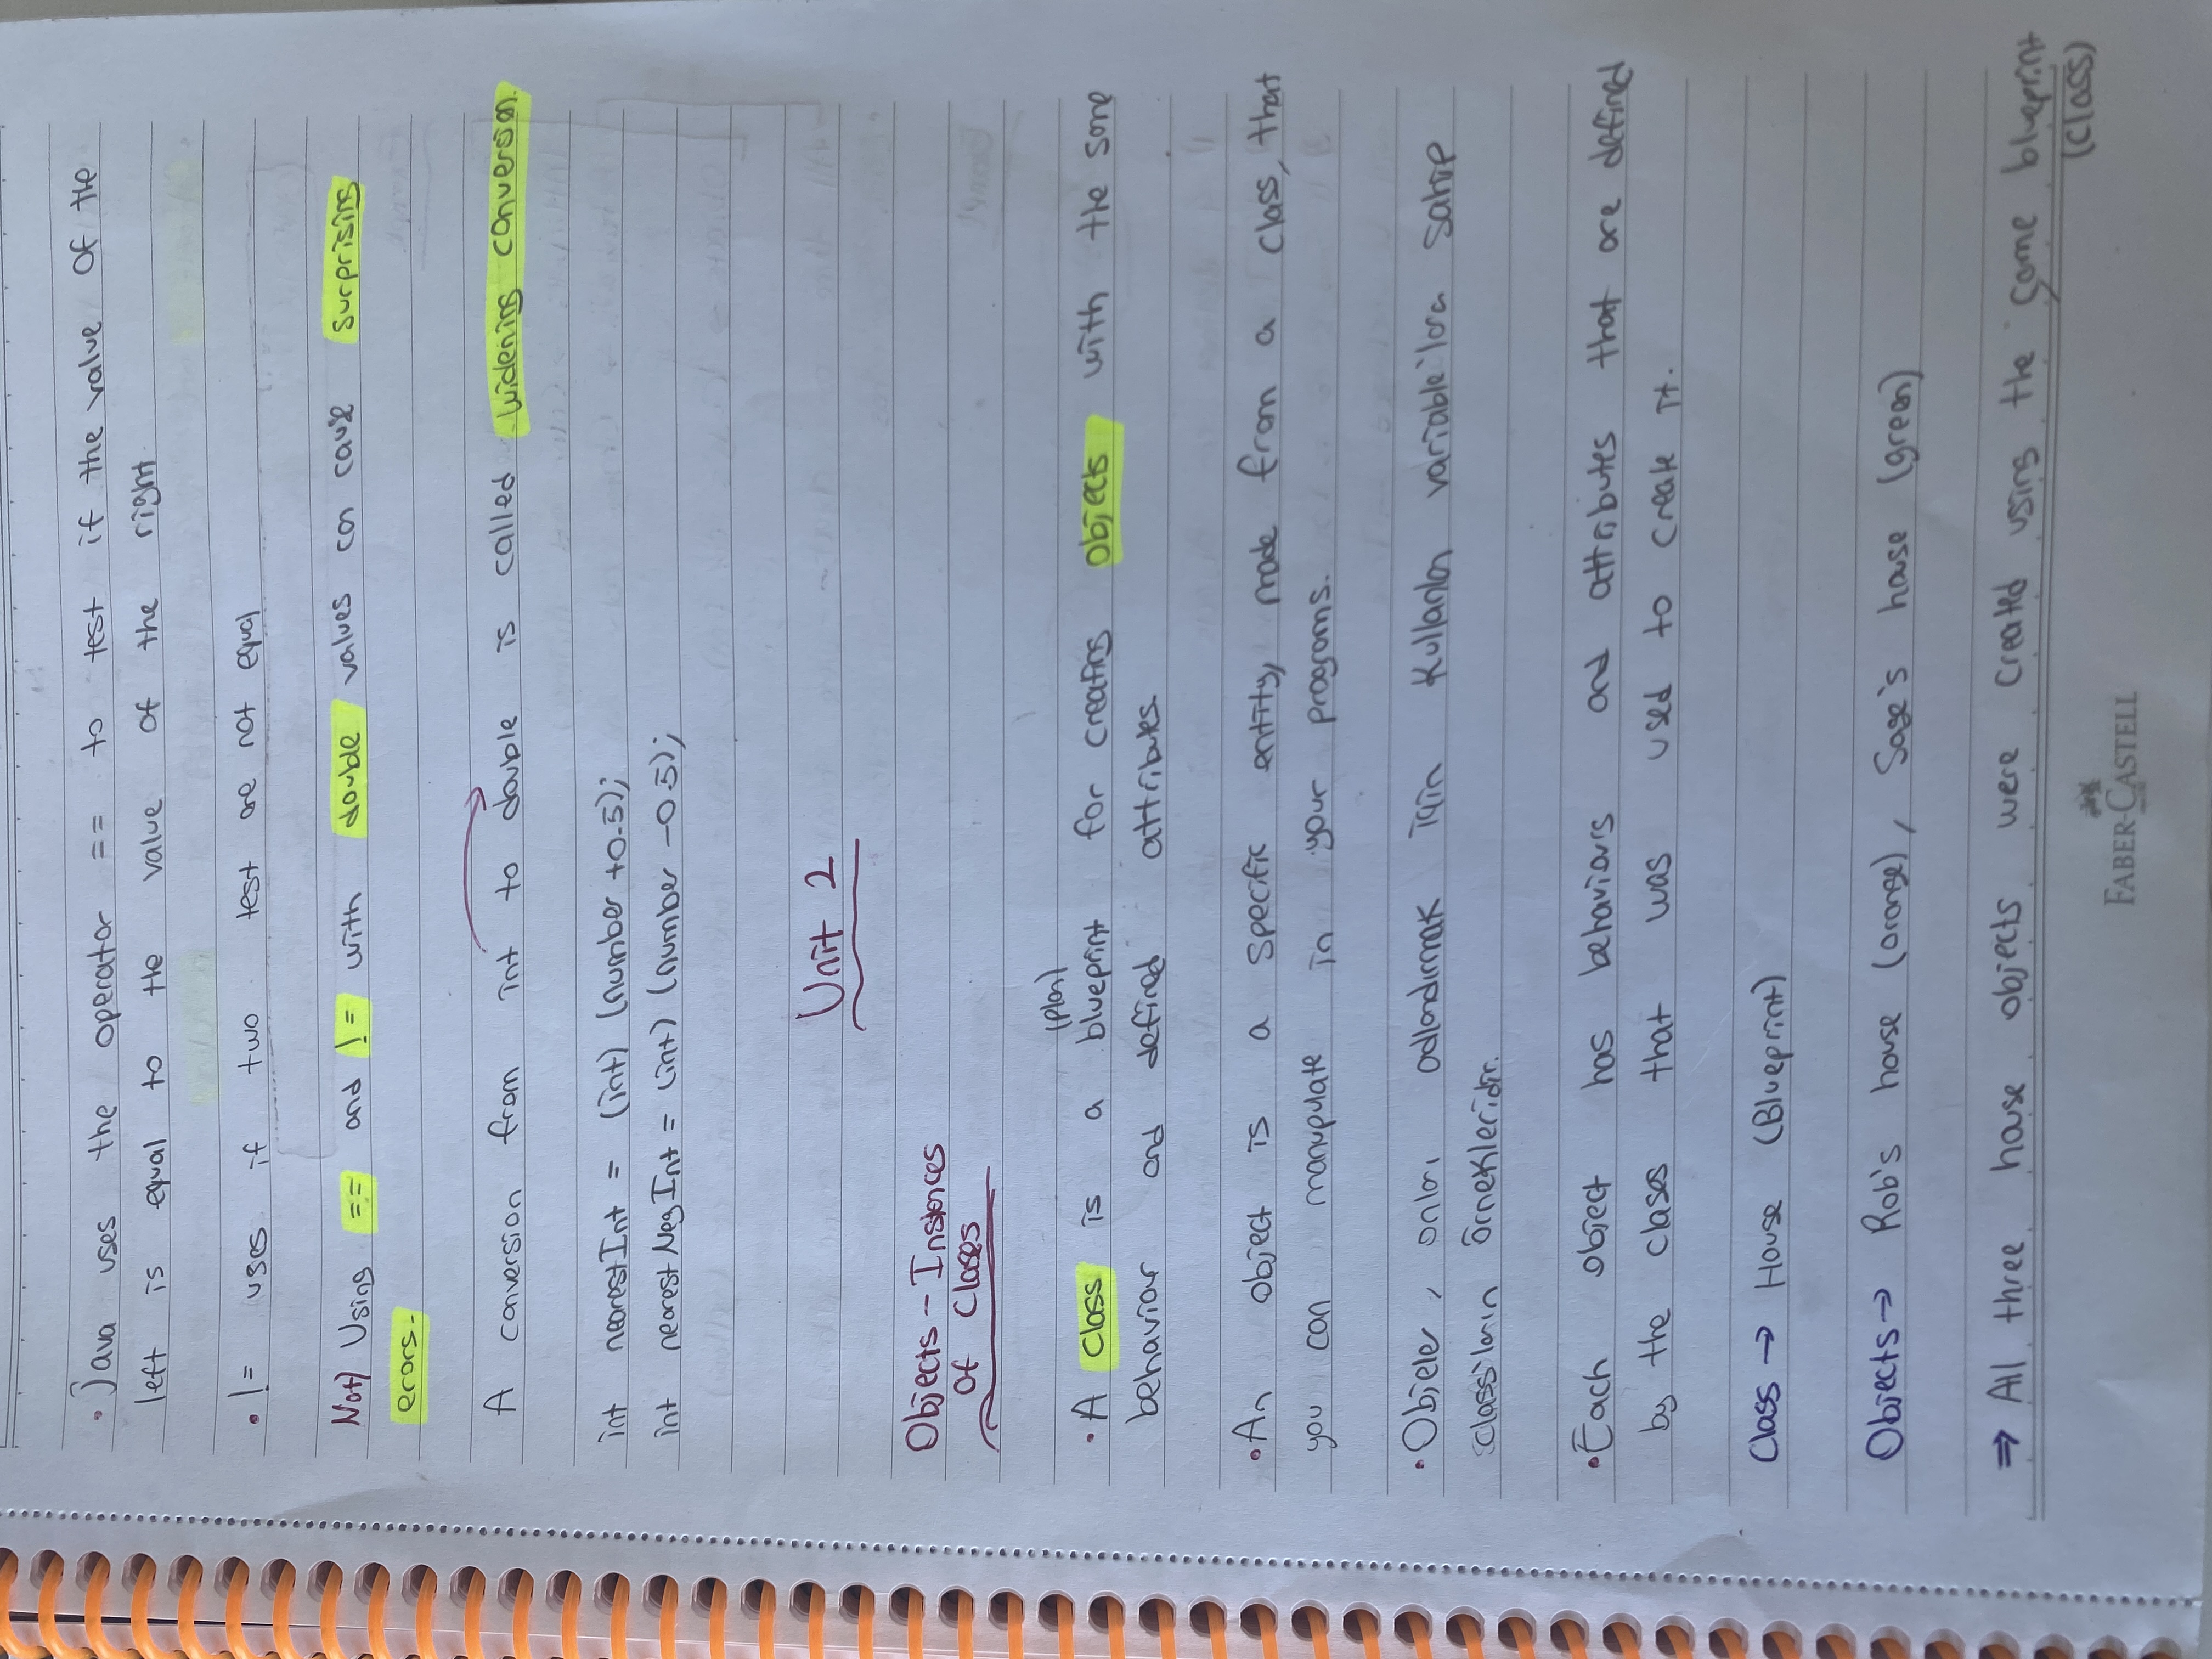 • Java uses the operator == to test if the value of the
left is equal to the value of the right.
• != uses if two test are not equal
Not) Using == and != with double values can cause surprising
erors.
A conversion from int to double is called widening conversion.
int nearestInt = (int) (number +0.5);
int nearestNegInt = (int) (number -0.5);
Unit 2
Objects - Instances
Of Clases
(plan)
• A class is a blueprint for creating objects with the same
behaviour and defined attributes.
• An object is a specific entity, made from a class, that
you can manupulate in your programs.
• Objeler, onları adlandırmak için kullanılan variable'lara sahip
class'ların örnekleridir.
• Each object has behaviours and attributes that are defined
by the clases that was used to create it.
Class → House (Blueprint)
Objects → Rob's house (orange), Sage's house (green)
⇒ All three house objects were created using the same blueprint
(class)
FABER-CASTELL